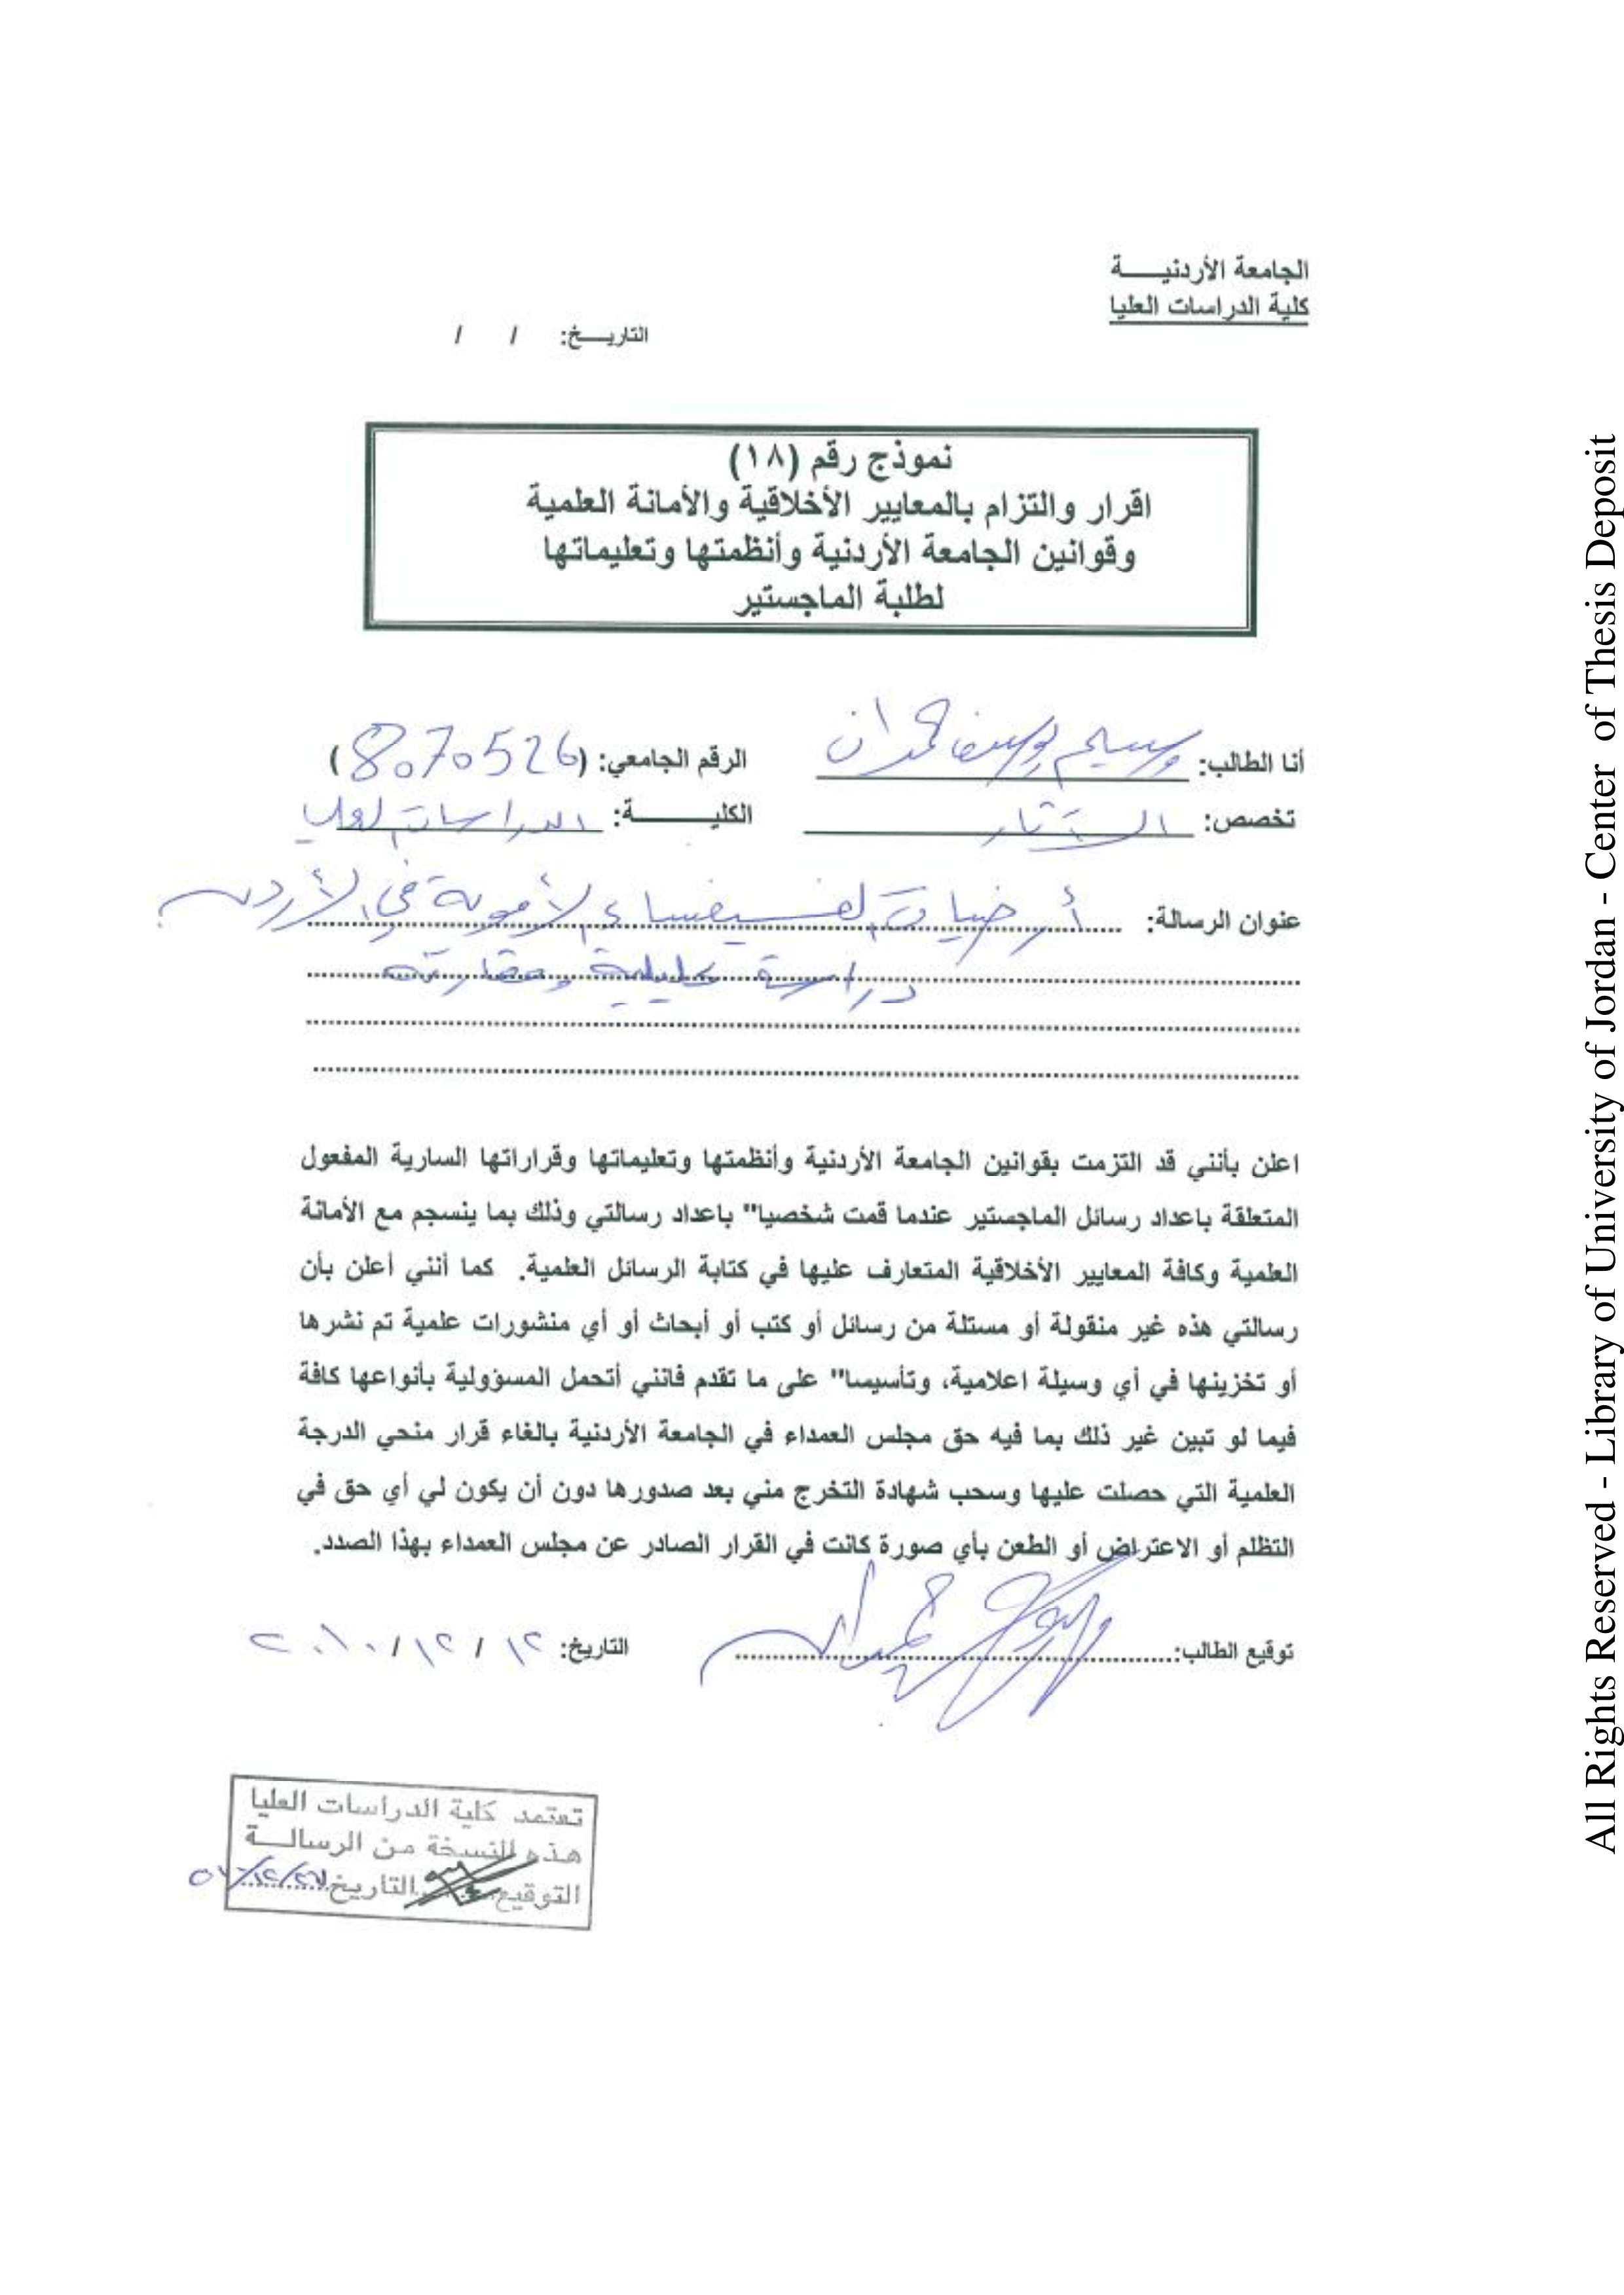 الجامعة الأردنيـــــة
كلية الدراسات العليا
التاريـــخ: / /
نموذج رقم (١٨)
اقرار والتزام بالمعايير الأخلاقية والأمانة العلمية
وقوانين الجامعة الأردنية وأنظمتها وتعليماتها
لطلبة الماجستير
أنا الطالب: وسيم يوسف حمدان الرقم الجامعي: (8070526)
تخصص: الآثار الكليـــــــة: الدراسات العليا
عنوان الرسالة: أرضيات الفسيفساء الأموية في الأردن
دراسة تحليلية ومقارنة
اعلن بأنني قد التزمت بقوانين الجامعة الأردنية وأنظمتها وتعليماتها وقراراتها السارية المفعول
المتعلقة باعداد رسائل الماجستير عندما قمت شخصيا" باعداد رسالتي وذلك بما ينسجم مع الأمانة
العلمية وكافة المعايير الأخلاقية المتعارف عليها في كتابة الرسائل العلمية. كما أنني أعلن بأن
رسالتي هذه غير منقولة أو مستلة من رسائل أو كتب أو أبحاث أو أي منشورات علمية تم نشرها
أو تخزينها في أي وسيلة اعلامية، وتأسيسا" على ما تقدم فانني أتحمل المسؤولية بأنواعها كافة
فيما لو تبين غير ذلك بما فيه حق مجلس العمداء في الجامعة الأردنية بالغاء قرار منحي الدرجة
العلمية التي حصلت عليها وسحب شهادة التخرج مني بعد صدورها دون أن يكون لي أي حق في
التظلم أو الاعتراض أو الطعن بأي صورة كانت في القرار الصادر عن مجلس العمداء بهذا الصدد.
توقيع الطالب: التاريخ: ١٢ / ١٢ / ٢٠١٠
تعتمد كلية الدراسات العليا
هذه النسخة من الرسالـــة
التوقيع التاريخ
All Rights Reserved - Library of University of Jordan - Center of Thesis Deposit